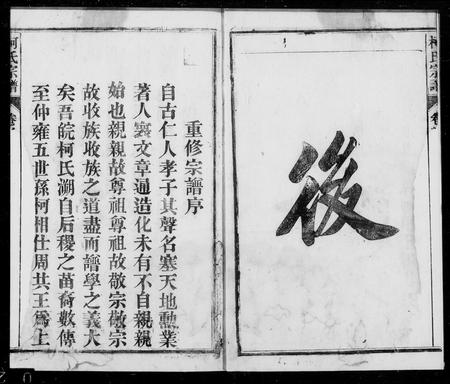 柯氏宗譜
卷
後
重修宗譜序
自古仁人孝子其聲名塞天地勳業
著人寰文章通造化未有不自親親
始也親親故尊祖尊祖故敬宗敬宗
故收族收族之道盡而譜學之義大
矣吾皖柯氏溯自后稷之苗裔數傳
至仲雍五世孫柯相仕周共王爲上
柯氏宗譜
卷